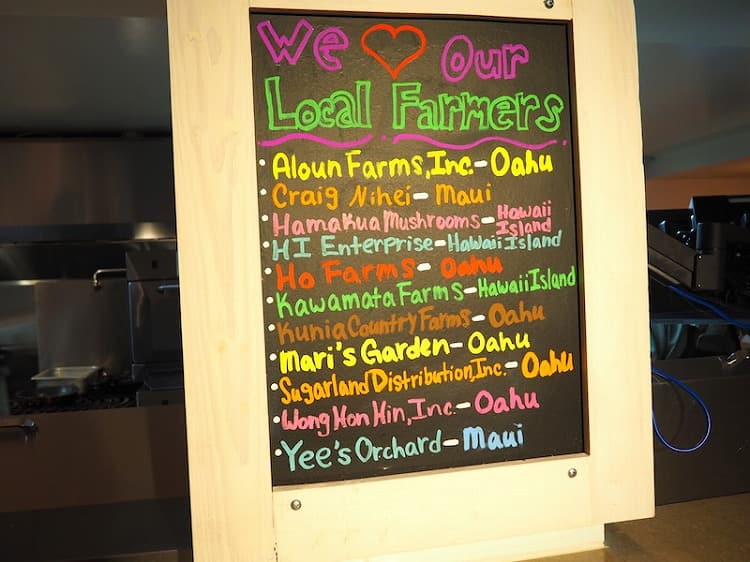 We Our
Local Farmers
• Aloun Farms, Inc. - Oahu
• Craig Nihei - Maui
• Hamakua Mushrooms - Hawaii
Island
• HI Enterprise - Hawaii Island
• Ho Farms - Oahu
• Kawamata Farms - Hawaii Island
• Kunia Country Farms - Oahu
• Mari's Garden - Oahu
• Sugarland Distribution, Inc. - Oahu
• Wong Hon Hin, Inc. - Oahu
• Yee's Orchard - Maui